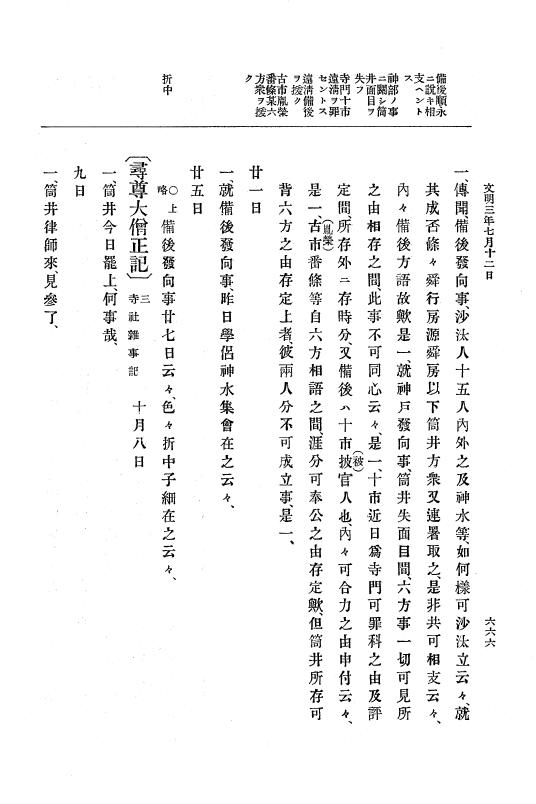 文明三年七月十二日
六六六
備後順永
ニ說キ相
支ヘント
ス
神部ノ事
ニ關シ筒
井面目ヲ
失フ
寺門十市
遠淸ヲ罪
セントス
遠淸備後
ヲ援ク
古市胤榮
番條某六
方衆ヲ援
ク
折中
一、傳聞、備後發向事、沙汰人十五人內外之及神水等、如何樣可沙汰立云々、就
其成否條々舜行房源舜房以下筒井方衆又連署取之、是非共可相支云々、
內々備後方語故歟是一、就神戶發向事、筒井失面目間、六方事一切可見所
之由相存之間、此事不可同心云々、是一、十市近日爲寺門可罪科之由及評
定間、所存外ニ存時分、又備後ハ十市披(被)官人也、內々可合力之由申付云々、
是一、古市(胤榮)番條等自六方相語之間、涯分可奉公之由存定歟、但筒井所存可
背六方之由存定上者、彼兩人分不可成立事、是一、
廿一日
一、就備後發向事、昨日學侶神水集會在之云々、
廿五日
○上略備後發向事廿七日云々、色々折中子細在之云々、
〔尋尊大僧正記〕三寺社雜事記 十月八日
一、筒井今日罷上、何事哉、
九日
一、筒井律師來、見參了、